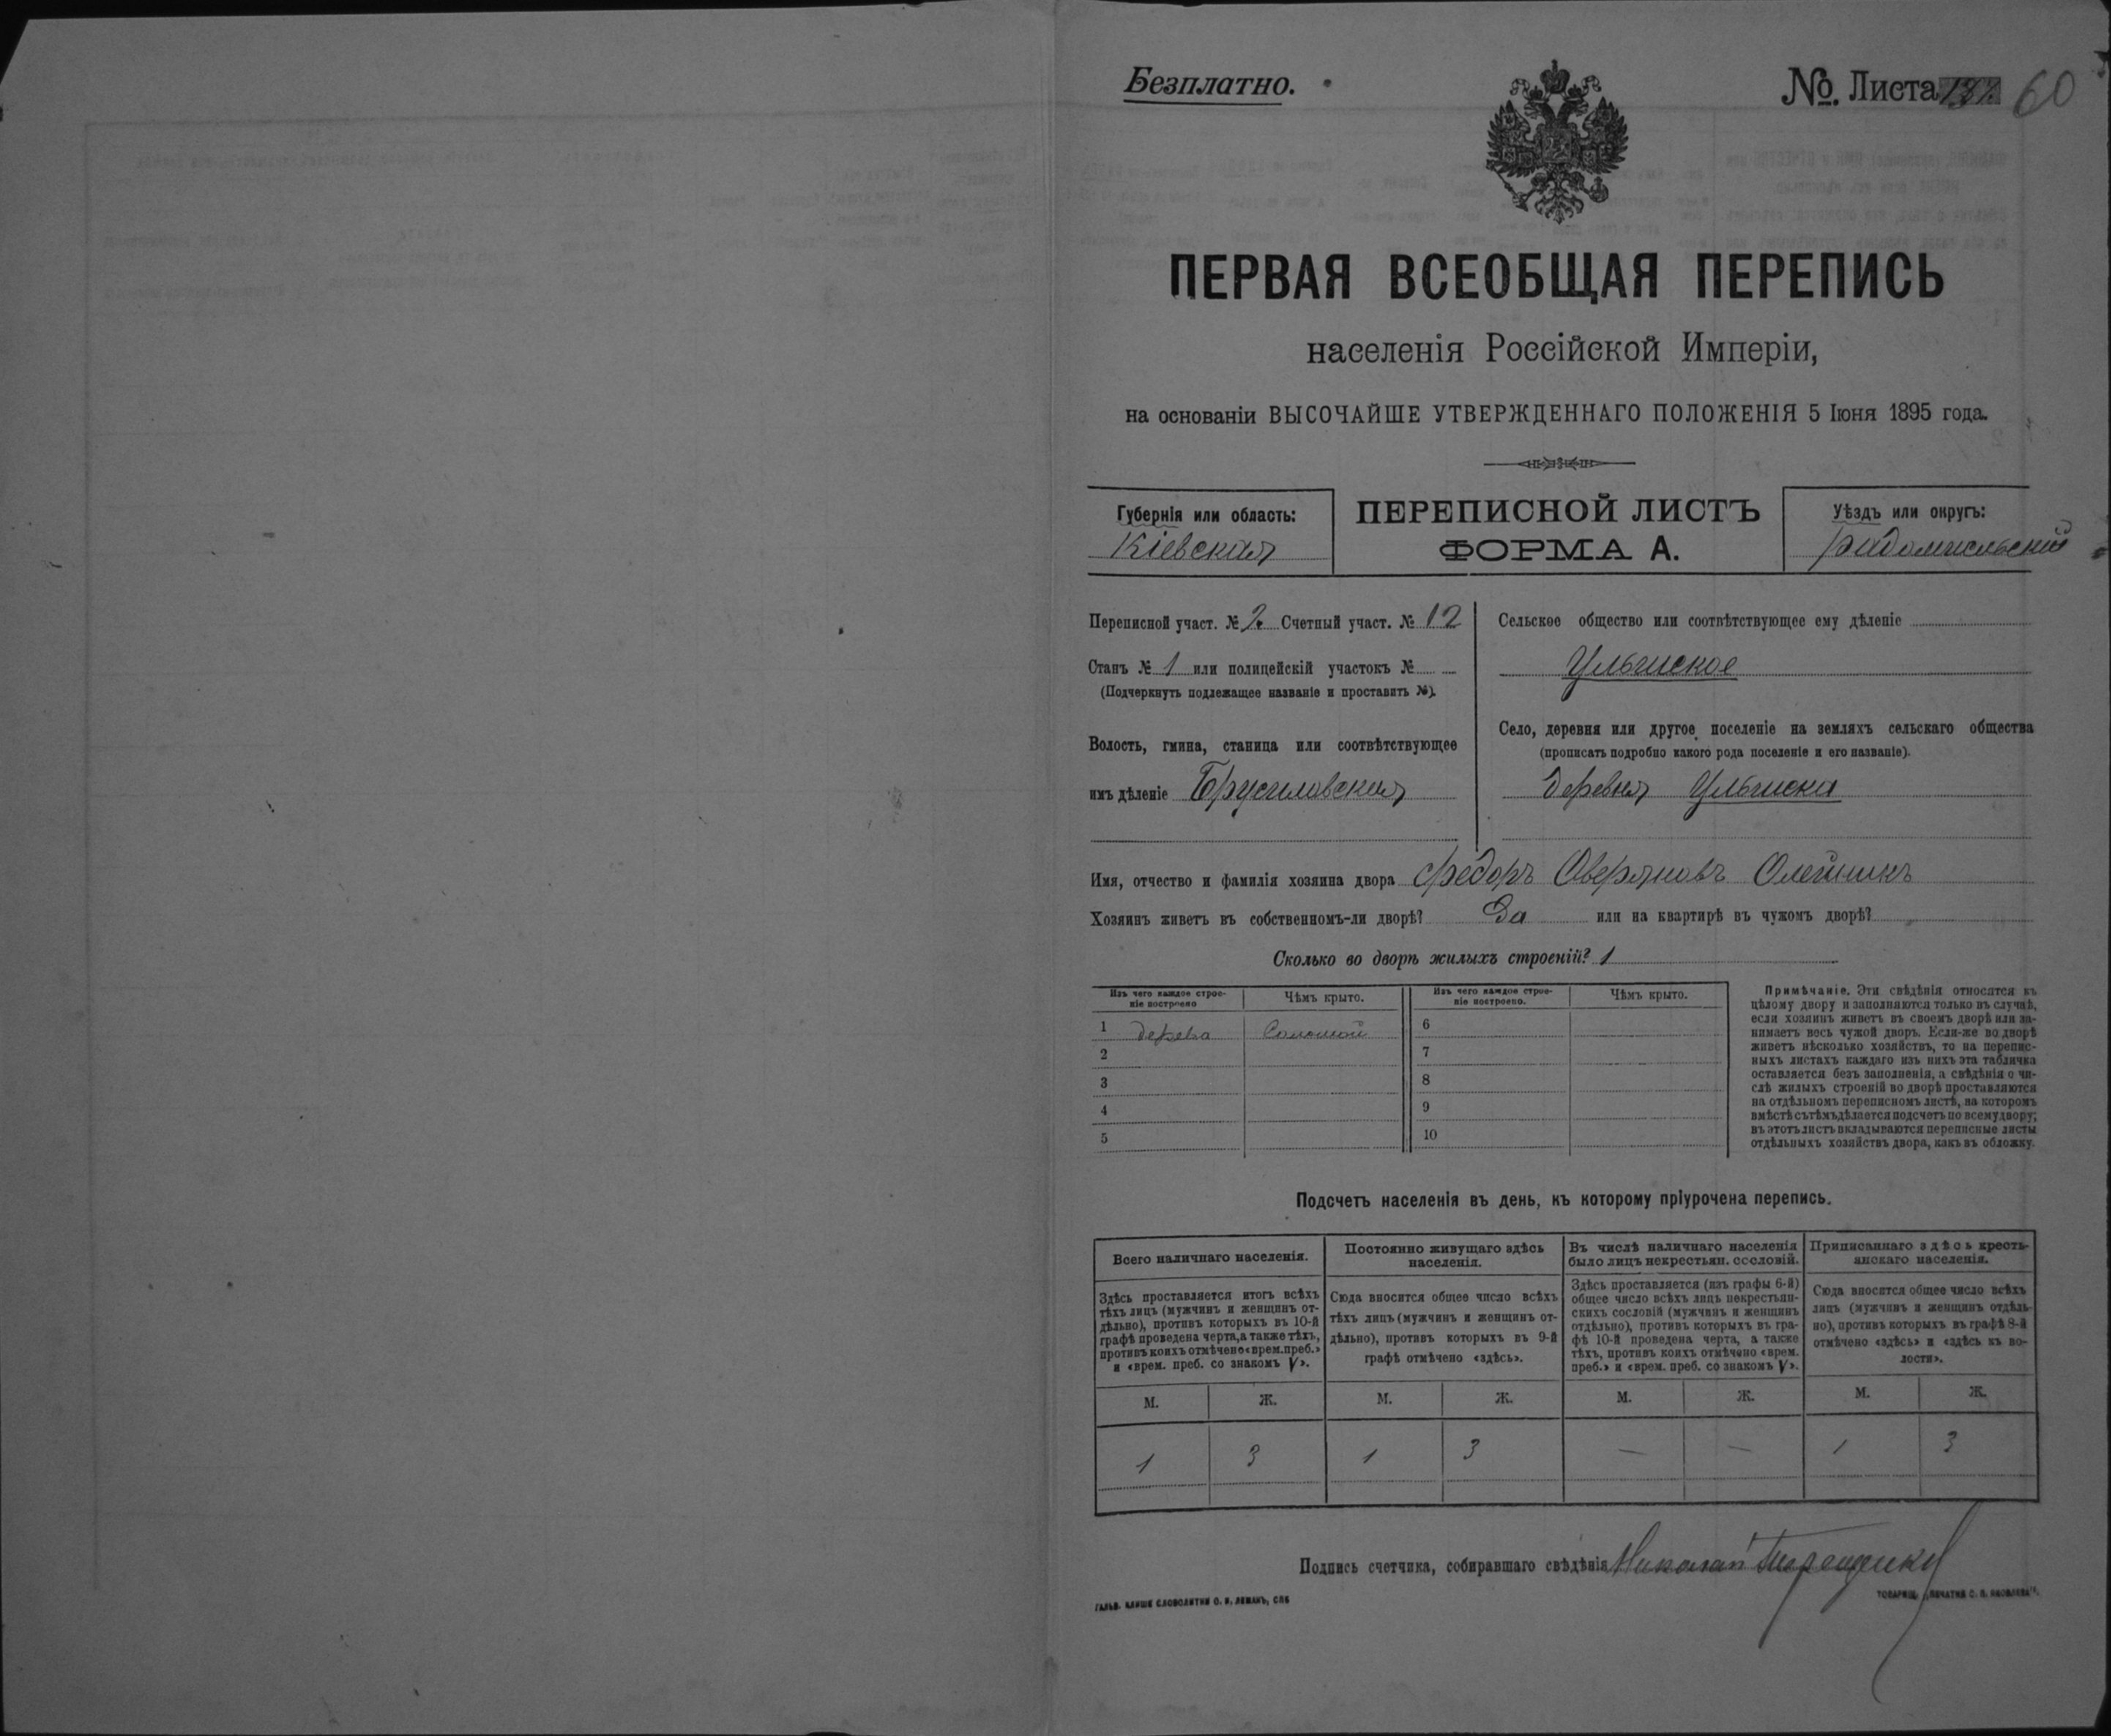 Безплатно.
№ Листа 60
ПЕРВАЯ ВСЕОБЩАЯ ПЕРЕПИСЬ
населенія Россійской Имперіи,
на основаніи ВЫСОЧАЙШЕ УТВЕРЖДЕННАГО ПОЛОЖЕНІЯ 5 Іюня 1895 года.
Губернія или область:
Кіевская
ПЕРЕПИСНОЙ ЛИСТЪ
ФОРМА А.
Уѣздъ или округъ:
Радомысльский
Переписной участ. № 2. Счетный участ. № 12
Станъ № 1 или полицейскій участокъ №
(Подчеркнуть подлежащее названіе и проставить №).
Волость, гмина, станица или соотвѣтствующее
имъ дѣленіе Брусиловская
Сельское общество или соотвѣтствующее ему дѣленіе
Ульшское
Село, деревня или другое поселеніе на земляхъ сельскаго общества
(прописать подробно какого рода поселеніе и его названіе).
деревня Ульшка
Имя, отчество и фамилія хозяина двора Федоръ Оверяновъ Олейникъ
Хозяинъ живетъ въ собственномъ-ли дворѣ? Да или на квартирѣ въ чужомъ дворѣ?
Сколько во дворѣ жилыхъ строеній? 1
Изъ чего каждое строе-
ніе построено
Чѣмъ крыто.
Изъ чего каждое строе-
ніе построено.
Чѣмъ крыто.
1 дерева Соломой 6
2 7
3 8
4 9
5 10
Примѣчаніе. Эти свѣдѣнія относятся къ
цѣлому двору и заполняются только въ случаѣ,
если хозяинъ живетъ въ своемъ дворѣ или за-
нимаетъ весь чужой дворъ. Если-же во дворѣ
живетъ нѣсколько хозяйствъ, то на перепис-
ныхъ листахъ каждаго изъ нихъ эта табличка
оставляется безъ заполненія, а свѣдѣнія о чи-
слѣ жилыхъ строеній во дворѣ проставляются
на отдѣльномъ переписномъ листѣ, на которомъ
вмѣстѣ съ тѣмъ дѣлается подсчетъ по всему двору;
въ этотъ листъ вкладываются переписные листы
отдѣльныхъ хозяйствъ двора, какъ въ обложку.
Подсчетъ населенія въ день, къ которому пріурочена перепись.
Всего наличнаго населенія.
Здѣсь проставляется итогъ всѣхъ
тѣхъ лицъ (мужчинъ и женщинъ от-
дѣльно), противъ которыхъ въ 10-й
графѣ проведена черта, а также тѣхъ,
противъ коихъ отмѣчено «врем. преб.»
и «врем. преб. со знакомъ V».
Постоянно живущаго здѣсь
населенія.
Сюда вносится общее число всѣхъ
тѣхъ лицъ (мужчинъ и женщинъ от-
дѣльно), противъ которыхъ въ 9-й
графѣ отмѣчено «здѣсь».
Въ числѣ наличнаго населенія
было лицъ некрестьян. сословій.
Здѣсь проставляется (изъ графы 6-й)
общее число всѣхъ лицъ некрестьян-
скихъ сословій (мужчинъ и женщинъ
отдѣльно), противъ которыхъ въ гра-
фѣ 10-й проведена черта, а также
тѣхъ, противъ коихъ отмѣчено «врем.
преб.» и «врем. преб. со знакомъ V».
Приписаннаго здѣсь кресть-
янскаго населенія.
Сюда вносится общее число всѣхъ
лицъ (мужчинъ и женщинъ отдѣль-
но), противъ которыхъ въ графѣ 8-й
отмѣчено «здѣсь» и «здѣсь къ во-
лости».
М. Ж. М. Ж. М. Ж. М. Ж.
1 3 1 3 — — 1 3
Подпись счетчика, собиравшаго свѣдѣнія Николай Терещенко
ГАЛЬВ. КЛИШЕ СЛОВОЛИТНИ О. И. ЛЕМАНЪ, СПБ
ТОВАРИЩ. „ПЕЧАТНЯ С. П. ЯКОВЛЕВА“.